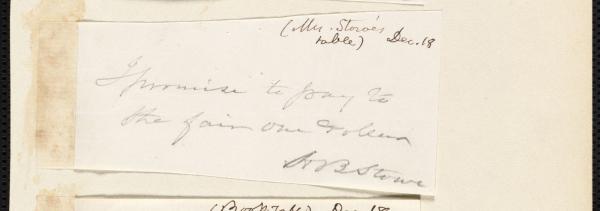 (Mrs. Stowe's
table) Dec. 18
I promise to pay to
the fair one dollar
HBStowe
(Book Table) Dec. 18